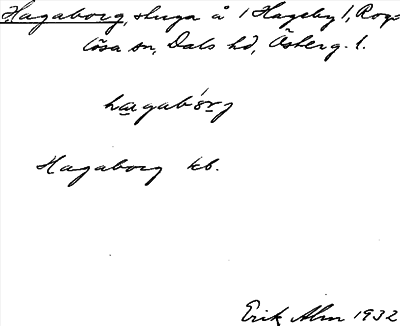 Hagaborg, stuga å 1 Hageby 1, Rogs
lösa sn, Dals hd, Österg. l.
hagabórj
Hagaborg kb.
Erik Alm 1932